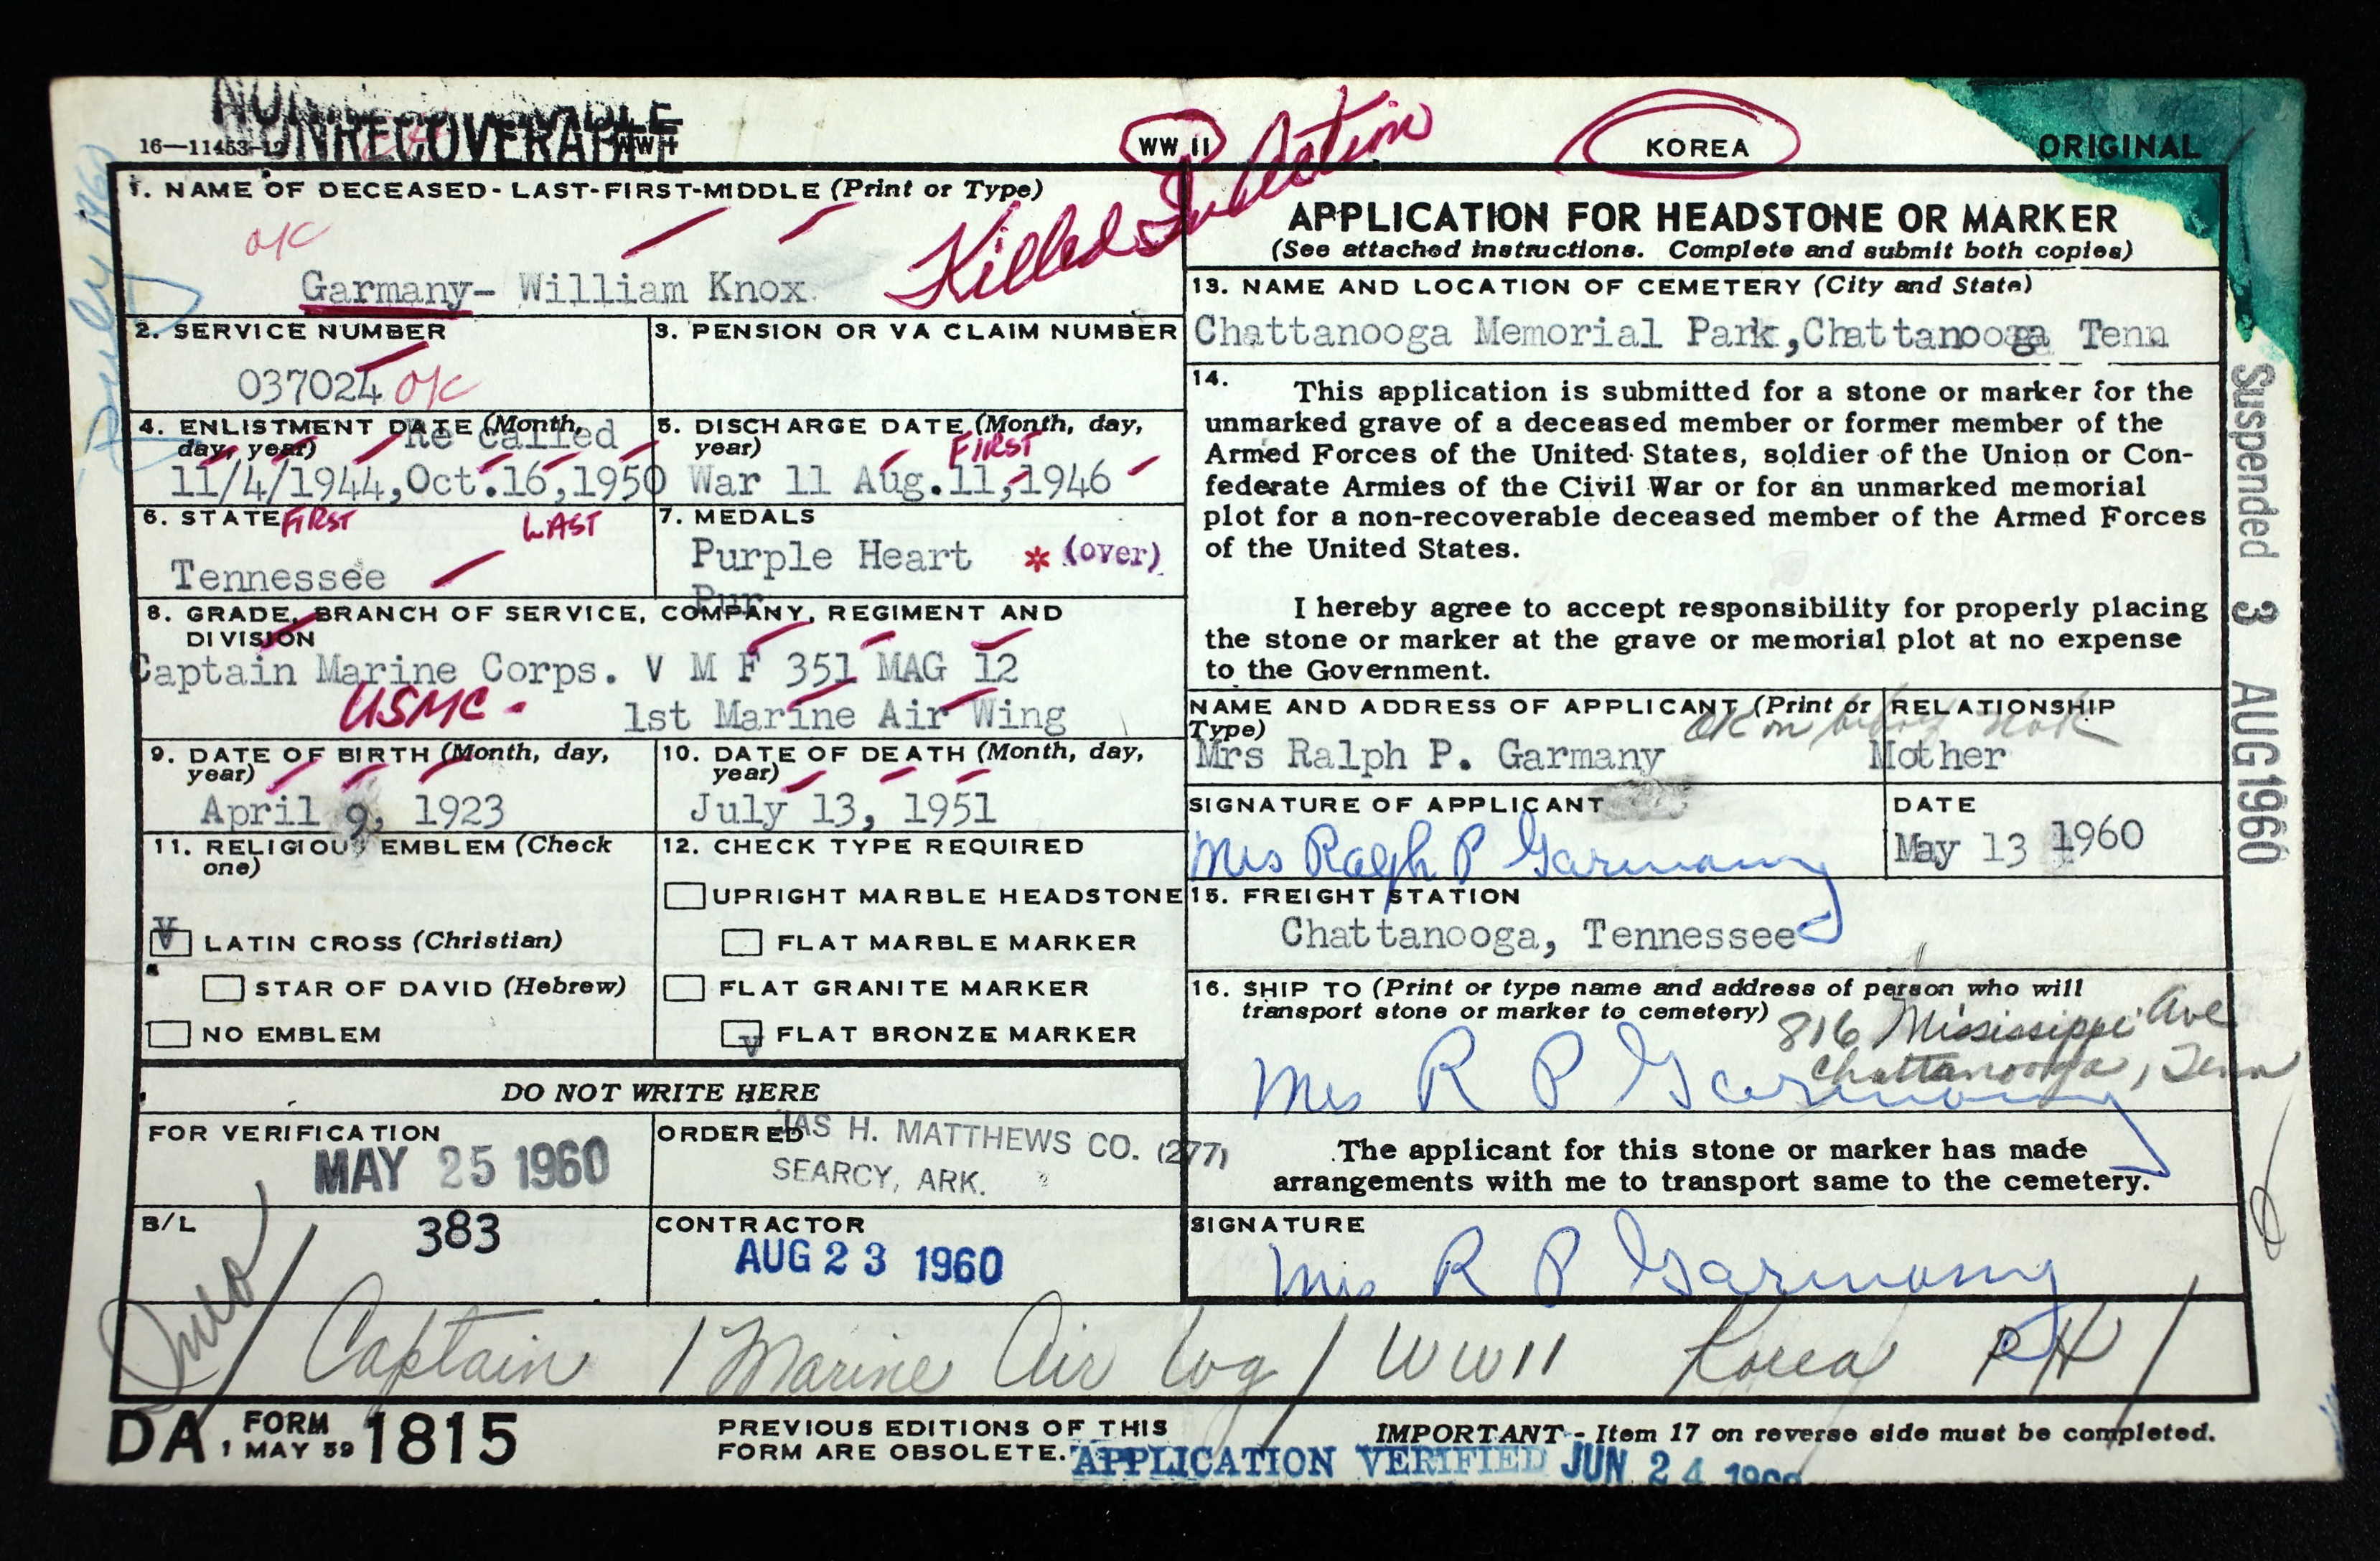 NONRECOVERABLE
16—11453-12
WW II
KOREA
ORIGINAL
Killed In Action
1. NAME OF DECEASED - LAST-FIRST-MIDDLE (Print or Type)
OK
Garmany- William Knox
2. SERVICE NUMBER
037024 OK
3. PENSION OR VA CLAIM NUMBER
4. ENLISTMENT DATE (Month, day, year)
Re called
11/4/1944, Oct. 16, 1950
5. DISCHARGE DATE (Month, day, year)
FIRST
War 11 Aug. 11, 1946
6. STATE
FIRST LAST
Tennessee
7. MEDALS
Purple Heart * (over)
Pur
8. GRADE, BRANCH OF SERVICE, COMPANY, REGIMENT AND
DIVISION
Captain Marine Corps. V M F 351 MAG 12
USMC. 1st Marine Air Wing
9. DATE OF BIRTH (Month, day, year)
April 9, 1923
10. DATE OF DEATH (Month, day, year)
July 13, 1951
11. RELIGIOUS EMBLEM (Check one)
V LATIN CROSS (Christian)
STAR OF DAVID (Hebrew)
NO EMBLEM
12. CHECK TYPE REQUIRED
UPRIGHT MARBLE HEADSTONE
FLAT MARBLE MARKER
FLAT GRANITE MARKER
V FLAT BRONZE MARKER
DO NOT WRITE HERE
FOR VERIFICATION
MAY 25 1960
ORDERED
JAS H. MATTHEWS CO. (277)
SEARCY, ARK.
B/L
383
CONTRACTOR
AUG 23 1960
APPLICATION FOR HEADSTONE OR MARKER
(See attached instructions. Complete and submit both copies)
13. NAME AND LOCATION OF CEMETERY (City and State)
Chattanooga Memorial Park, Chattanooga Tenn
14. This application is submitted for a stone or marker for the
unmarked grave of a deceased member or former member of the
Armed Forces of the United States, soldier of the Union or Con-
federate Armies of the Civil War or for an unmarked memorial
plot for a non-recoverable deceased member of the Armed Forces
of the United States.
I hereby agree to accept responsibility for properly placing
the stone or marker at the grave or memorial plot at no expense
to the Government.
NAME AND ADDRESS OF APPLICANT (Print or Type)
Mrs Ralph P. Garmany
RELATIONSHIP
Mother
SIGNATURE OF APPLICANT
Mrs Ralph P Garmany
DATE
May 13 1960
15. FREIGHT STATION
Chattanooga, Tennessee
16. SHIP TO (Print or type name and address of person who will
transport stone or marker to cemetery)
816 Mississippi Ave
Chattanooga, Tenn
Mrs R P Garmany
The applicant for this stone or marker has made
arrangements with me to transport same to the cemetery.
SIGNATURE
Mrs R P Garmany
Suspended 3 AUG 1960
Captain / 1 Marine Air Wg / WW II Korea PH /
DA FORM 1 MAY 59 1815
PREVIOUS EDITIONS OF THIS
FORM ARE OBSOLETE.
IMPORTANT - Item 17 on reverse side must be completed.
APPLICATION VERIFIED JUN 24